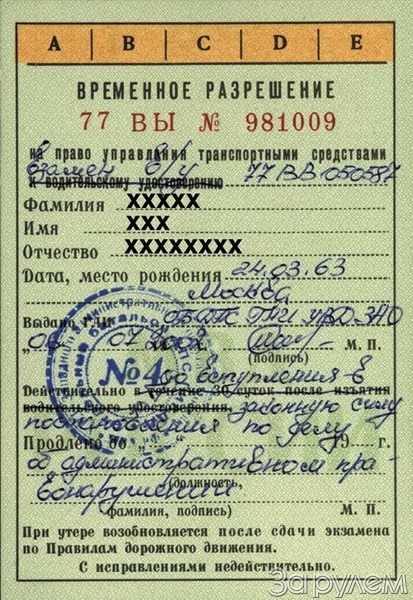 A B C D E
ВРЕМЕННОЕ РАЗРЕШЕНИЕ
77 ВЫ № 981009
на право управления транспортными средствами
взамен В/У 77 ВВ 050587
к водительскому удостоверению
Фамилия XXXXX
Имя XXX
Отчество XXXXXXXX
Дата, место рождения 24.03.63
Москва
Выдано ГАИ
"06" 07 2002
(подпись) М. П.
№4 до вступления в
Действительно в течение 30 суток после изъятия
водительского удостоверения, законную силу
постановления по делу
Продлено до "..." 19 г.
об административном пра-
вонарушении
(должность,
фамилия, подпись) М. П.
При утере возобновляется после сдачи экзамена
по Правилам дорожного движения.
С исправлениями недействительно.
За рулем